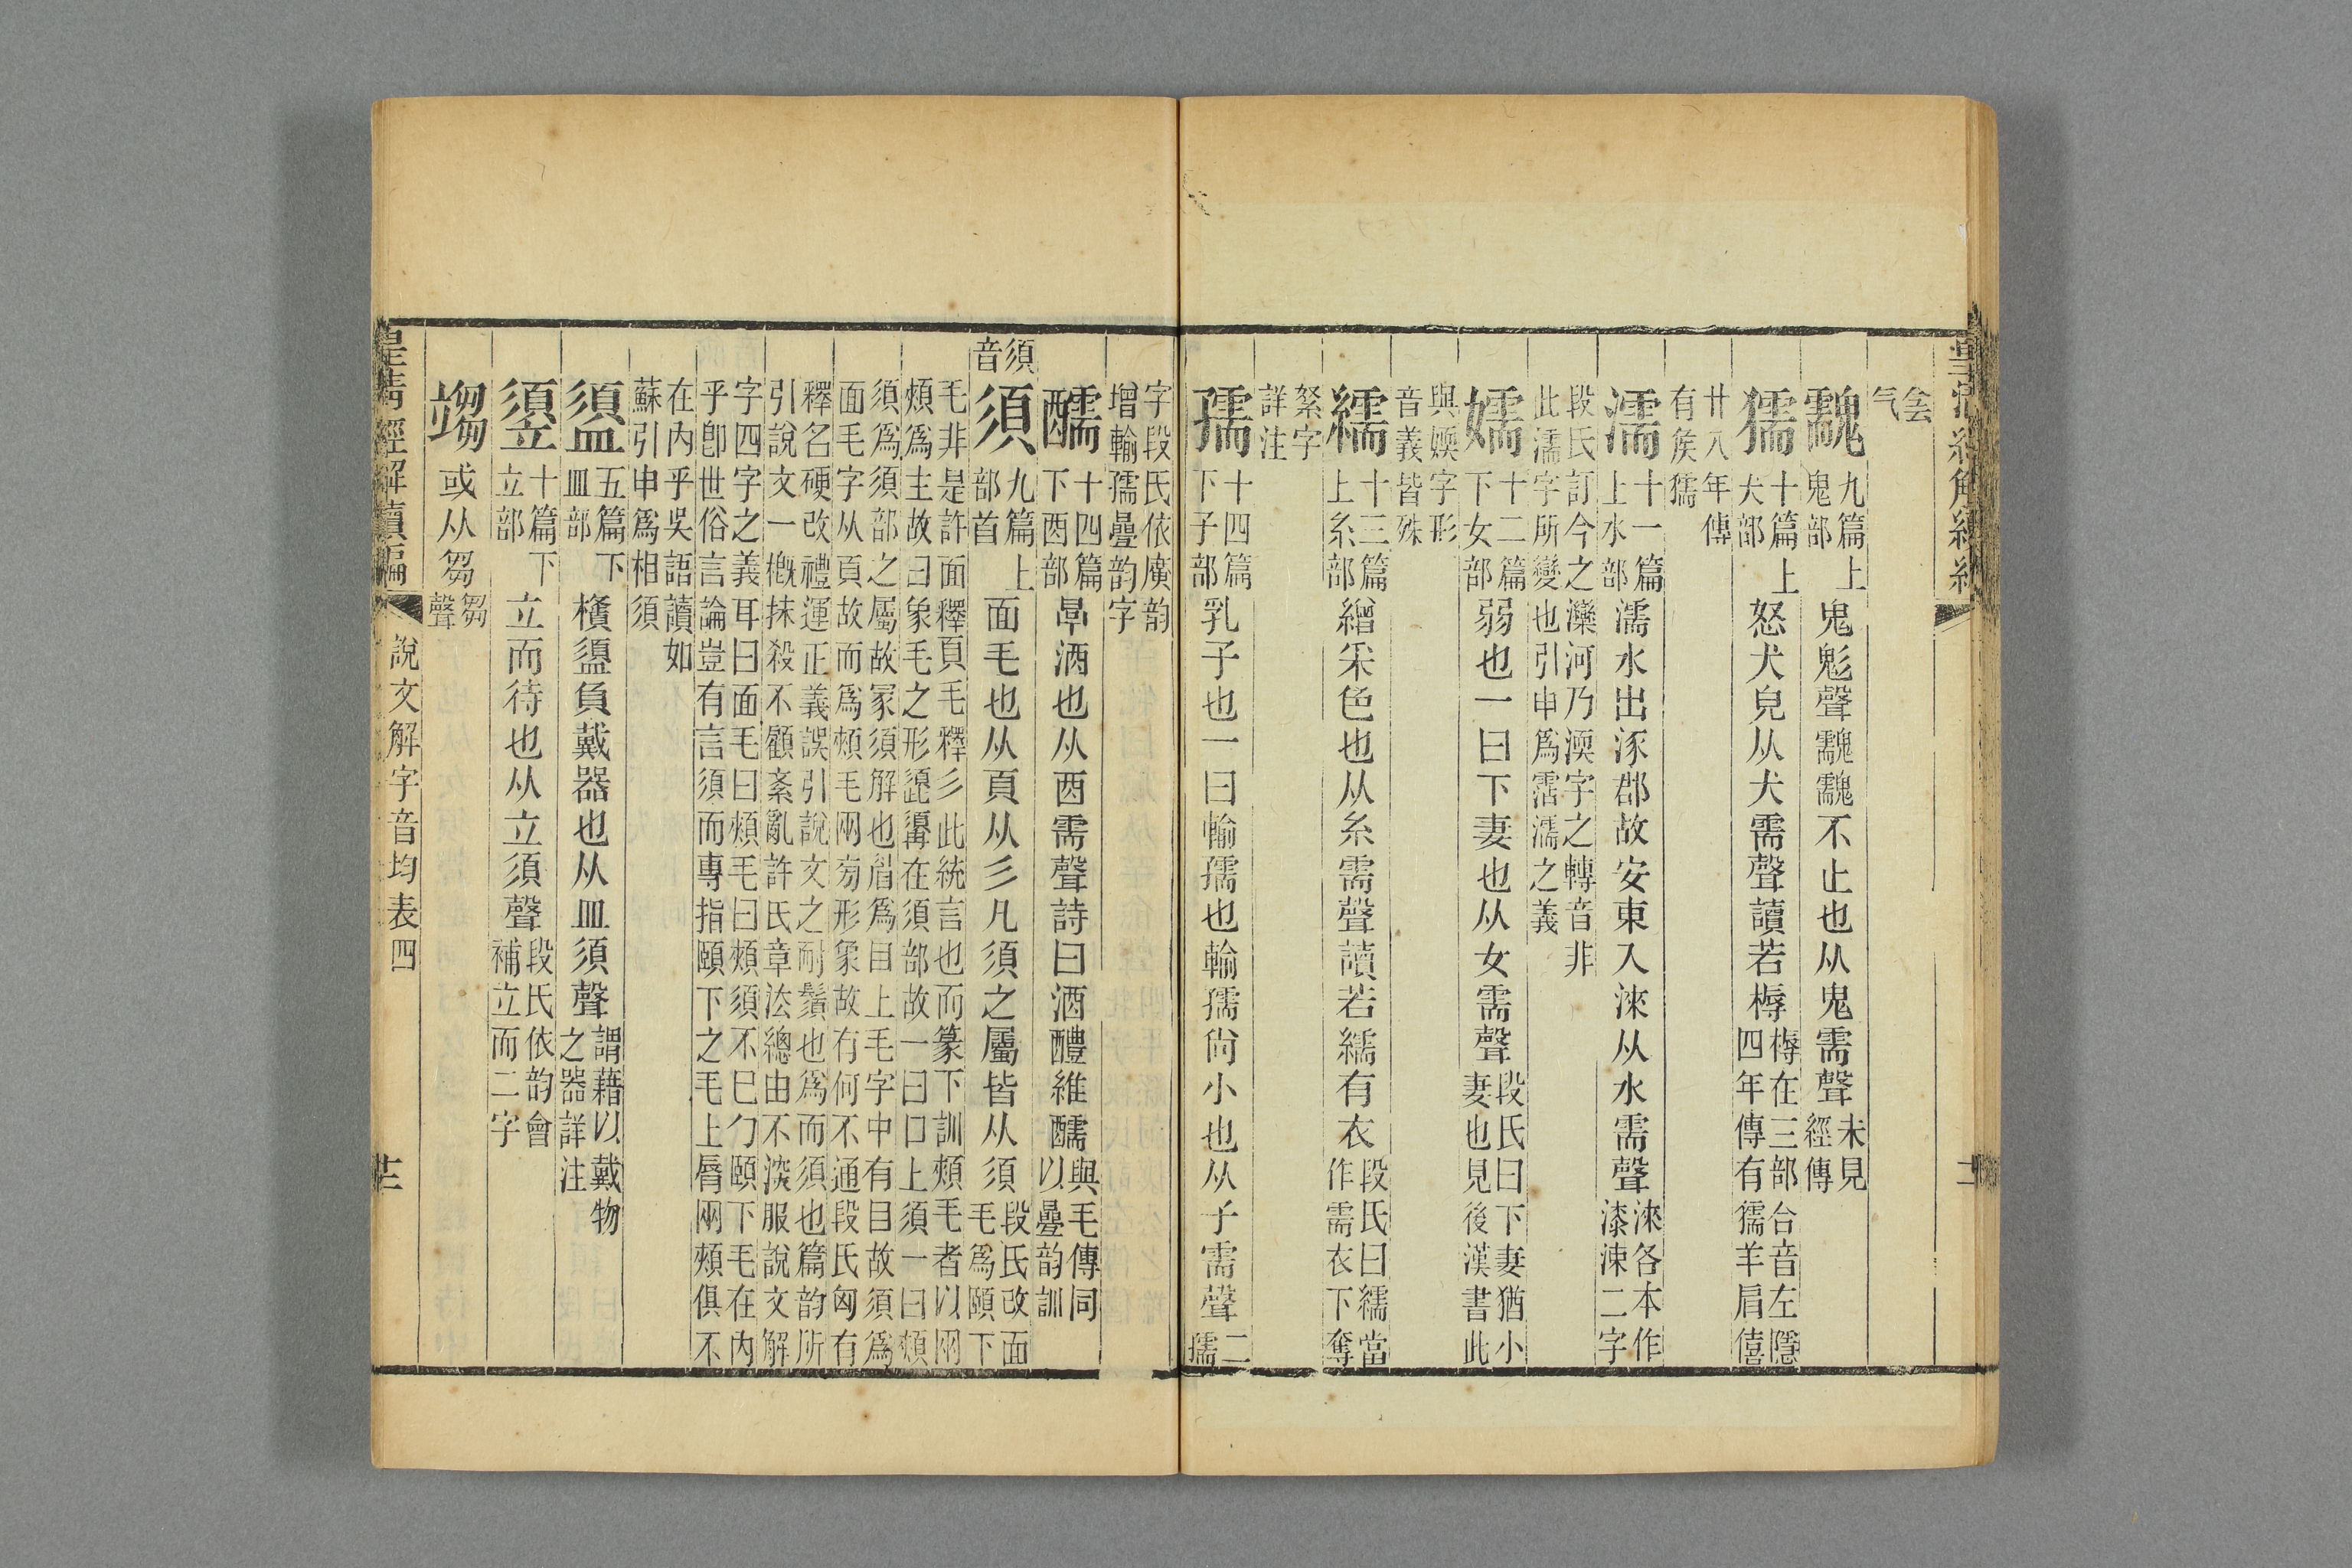 气
䰰九篇上鬼部鬼鬽聲䰰䰰不止也从鬼需聲未見經傳
獳十篇上犬部怒犬皃从犬需聲讀若槈槈在三部合音左隱四年傳有獳羊肩僖
廿八年傳有矦獳
濡十一篇上水部濡水出涿郡故安東入淶从水需聲淶各本作漆涑二字
段氏訂今之灤河乃渜字之轉音非此濡字所變也引申爲霑濡之義
嬬十二篇下女部弱也一曰下妻也从女需聲段氏曰下妻猶小妻也見後漢書此
與媆字形音義皆殊
繻十三篇上糸部繒采色也从糸需聲讀若繻有衣段氏曰繻當作需衣下奪
袽字詳注
孺十四篇下子部乳子也一曰輸孺也輸孺尙小也从子需聲二孺
字段氏依廣韵增輸孺曡韵字
醹十四篇下酉部厚酒也从酉需聲詩曰酒醴維醹與毛傳同以曡韵訓
須音
須九篇上部首面毛也从頁从彡凡須之屬皆从須段氏改面毛爲頤下
毛非是許面釋頁毛釋彡此統言也而篆下訓頰毛者以网頰爲主故曰象毛之形頾𩓣在須部故一曰口上須一曰頰
須爲須部之屬故冡須解也眉爲目上毛字中有目故須爲面毛字从頁故而爲頰毛网旁形象故有何不通段氏匈有
釋名硬改禮運正義誤引說文之耐鬚也爲而須也篇韵所引說文一槪抹殺不顧紊亂許氏章法總由不深服說文解
字四字之義耳曰面毛曰頰毛曰頰須不已勹頤下毛在內乎卽世俗言論豈有言須而專指頤下之毛上脣网頰俱不
在內乎吳語讀如蘇引申爲相須
盨五篇下皿部檟盨負戴器也从皿須聲謂藉以戴物之器詳注
䇓十篇下立部立而待也从立須聲段氏依韵會補立而二字
䇍或从芻芻聲
皇淸經解續編 說文解字音均表四